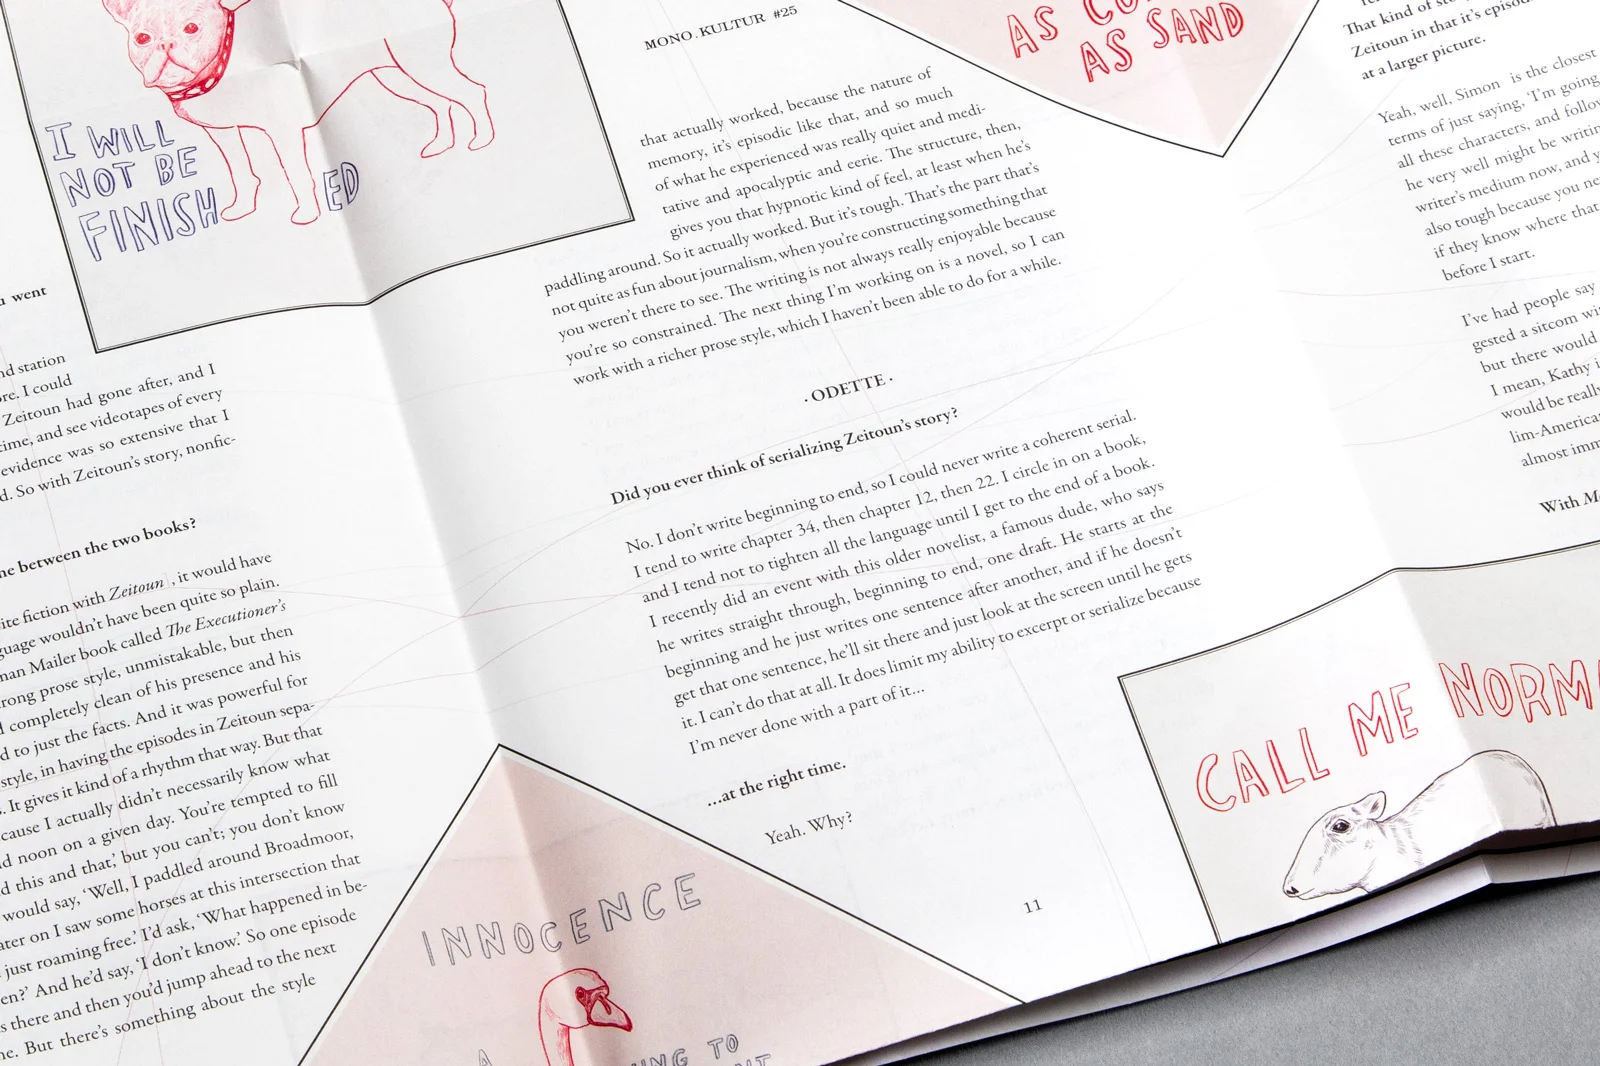 I WILL
NOT BE
FINISHED
u went
nd station
ore. I could
Zeitoun had gone after, and I
time, and see videotapes of every
evidence was so extensive that I
d. So with Zeitoun's story, nonfic-
ne between the two books?
ite fiction with Zeitoun , it would have
guage wouldn't have been quite so plain.
man Mailer book called The Executioner's
rong prose style, unmistakable, but then
d completely clean of his presence and his
d to just the facts. And it was powerful for
style, in having the episodes in Zeitoun sepa-
. It gives it kind of a rhythm that way. But that
cause I actually didn't necessarily know what
d noon on a given day. You're tempted to fill
d this and that,' but you can't; you don't know
would say, 'Well, I paddled around Broadmoor,
ater on I saw some horses at this intersection that
just roaming free.' I'd ask, 'What happened in be-
en?' And he'd say, 'I don't know.' So one episode
s there and then you'd jump ahead to the next
ne. But there's something about the style
MONO.KULTUR #25
that actually worked, because the nature of
memory, it's episodic like that, and so much
of what he experienced was really quiet and medi-
tative and apocalyptic and eerie. The structure, then,
gives you that hypnotic kind of feel, at least when he's
paddling around. So it actually worked. But it's tough. That's the part that's
not quite as fun about journalism, when you're constructing something that
you weren't there to see. The writing is not always really enjoyable because
you're so constrained. The next thing I'm working on is a novel, so I can
work with a richer prose style, which I haven't been able to do for a while.
· ODETTE ·
Did you ever think of serializing Zeitoun's story?
No. I don't write beginning to end, so I could never write a coherent serial.
I tend to write chapter 34, then chapter 12, then 22. I circle in on a book,
and I tend not to tighten all the language until I get to the end of a book.
I recently did an event with this older novelist, a famous dude, who says
he writes straight through, beginning to end, one draft. He starts at the
beginning and he just writes one sentence after another, and if he doesn't
get that one sentence, he'll sit there and just look at the screen until he gets
it. I can't do that at all. It does limit my ability to excerpt or serialize because
I'm never done with a part of it...
...at the right time.
Yeah. Why?
11
INNOCENCE
A
TO
AS
AS SAND
That kind of
Zeitoun in that it's
at a larger picture.
Yeah, well, Simon is the closest
terms of just saying, 'I'm going
all these characters, and follow
he very well might be writin
writer's medium now, and y
also tough because you ne
if they know where that
before I start.
I've had people say
gested a sitcom wi
but there would
I mean, Kathy i
would be really
lim-America
almost imm
With M
CALL ME NORM